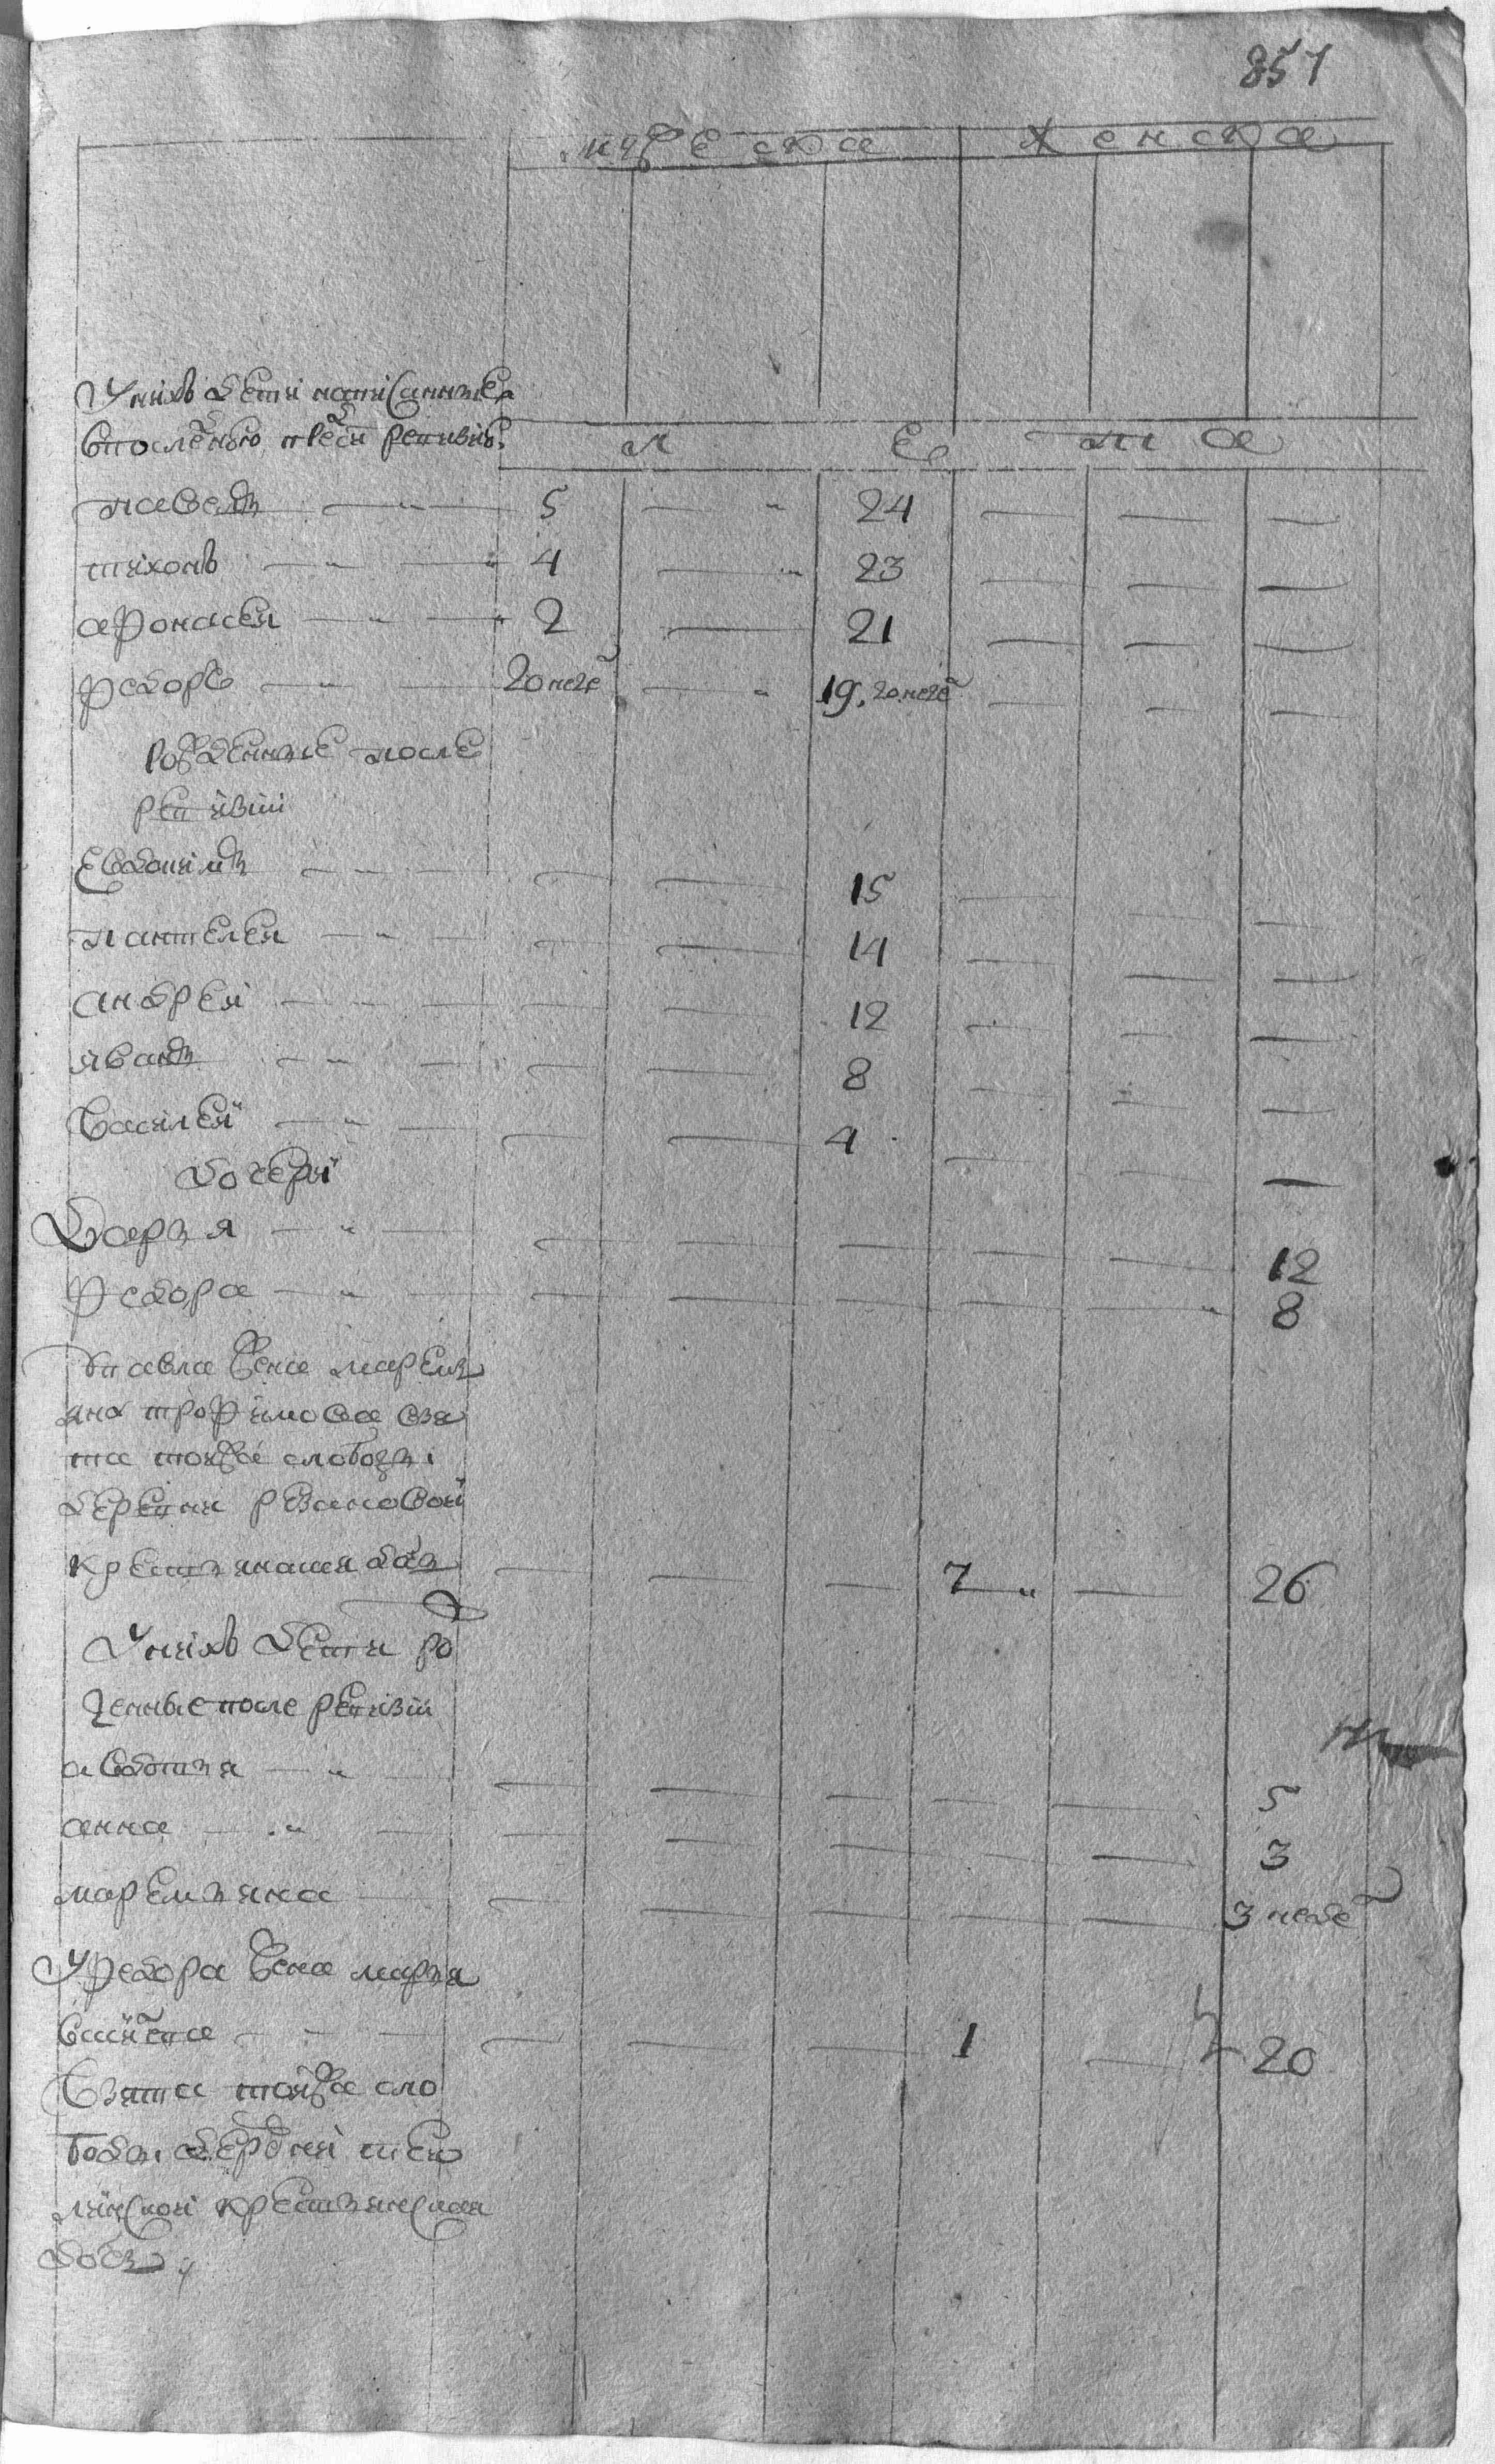 851
мужеска женска
У них дети написанные
в последнюю пред сим ревизию
лета
павелъ 5 24
тихонъ 4 23
афонасеи 2 21
федоръ 20 неде 19. 20 неде
рожденные после
ревизии
Евдокимъ 15
пантелеи 14
андреи 12
иванъ 8
василеи 4
дочери
дарья 12
федора 8
У павла жена маремь
яна трофимова взя
та тоиже слободы
деревни резановои
крестьянская дочь 7 26
У них дети ро
жденные после ревизии
авдотья 5
анна 3
маремьяна 3 неде
У федора жена марья
1 20
взята тоиже сло
боды деревни
крестьянская
дочь